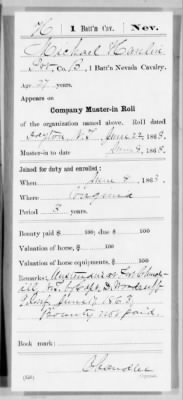 H | 1 Batt'n Cav. | Nev.
Michael Hanlin
Pvt. Co. B, 1 Batt'n Nevada Cavalry.
Age 27 years.
Appears on
Company Muster-in Roll
of the organization named above. Roll dated
Dayton N.T. June 22, 1863.
Muster-in to date June 8, 1863.
Joined for duty and enrolled:
When June 8, 1863.
Where Virginia
Period 3 years.
Bounty paid $ 100; due $ 100
Valuation of horse, $ 100
Valuation of horse equipments, $ 100
Remarks: at Fort Church-
ill, N.T. by Capt. D.
June 17, 1863,
Bounty not paid.
Book mark:
Chandler